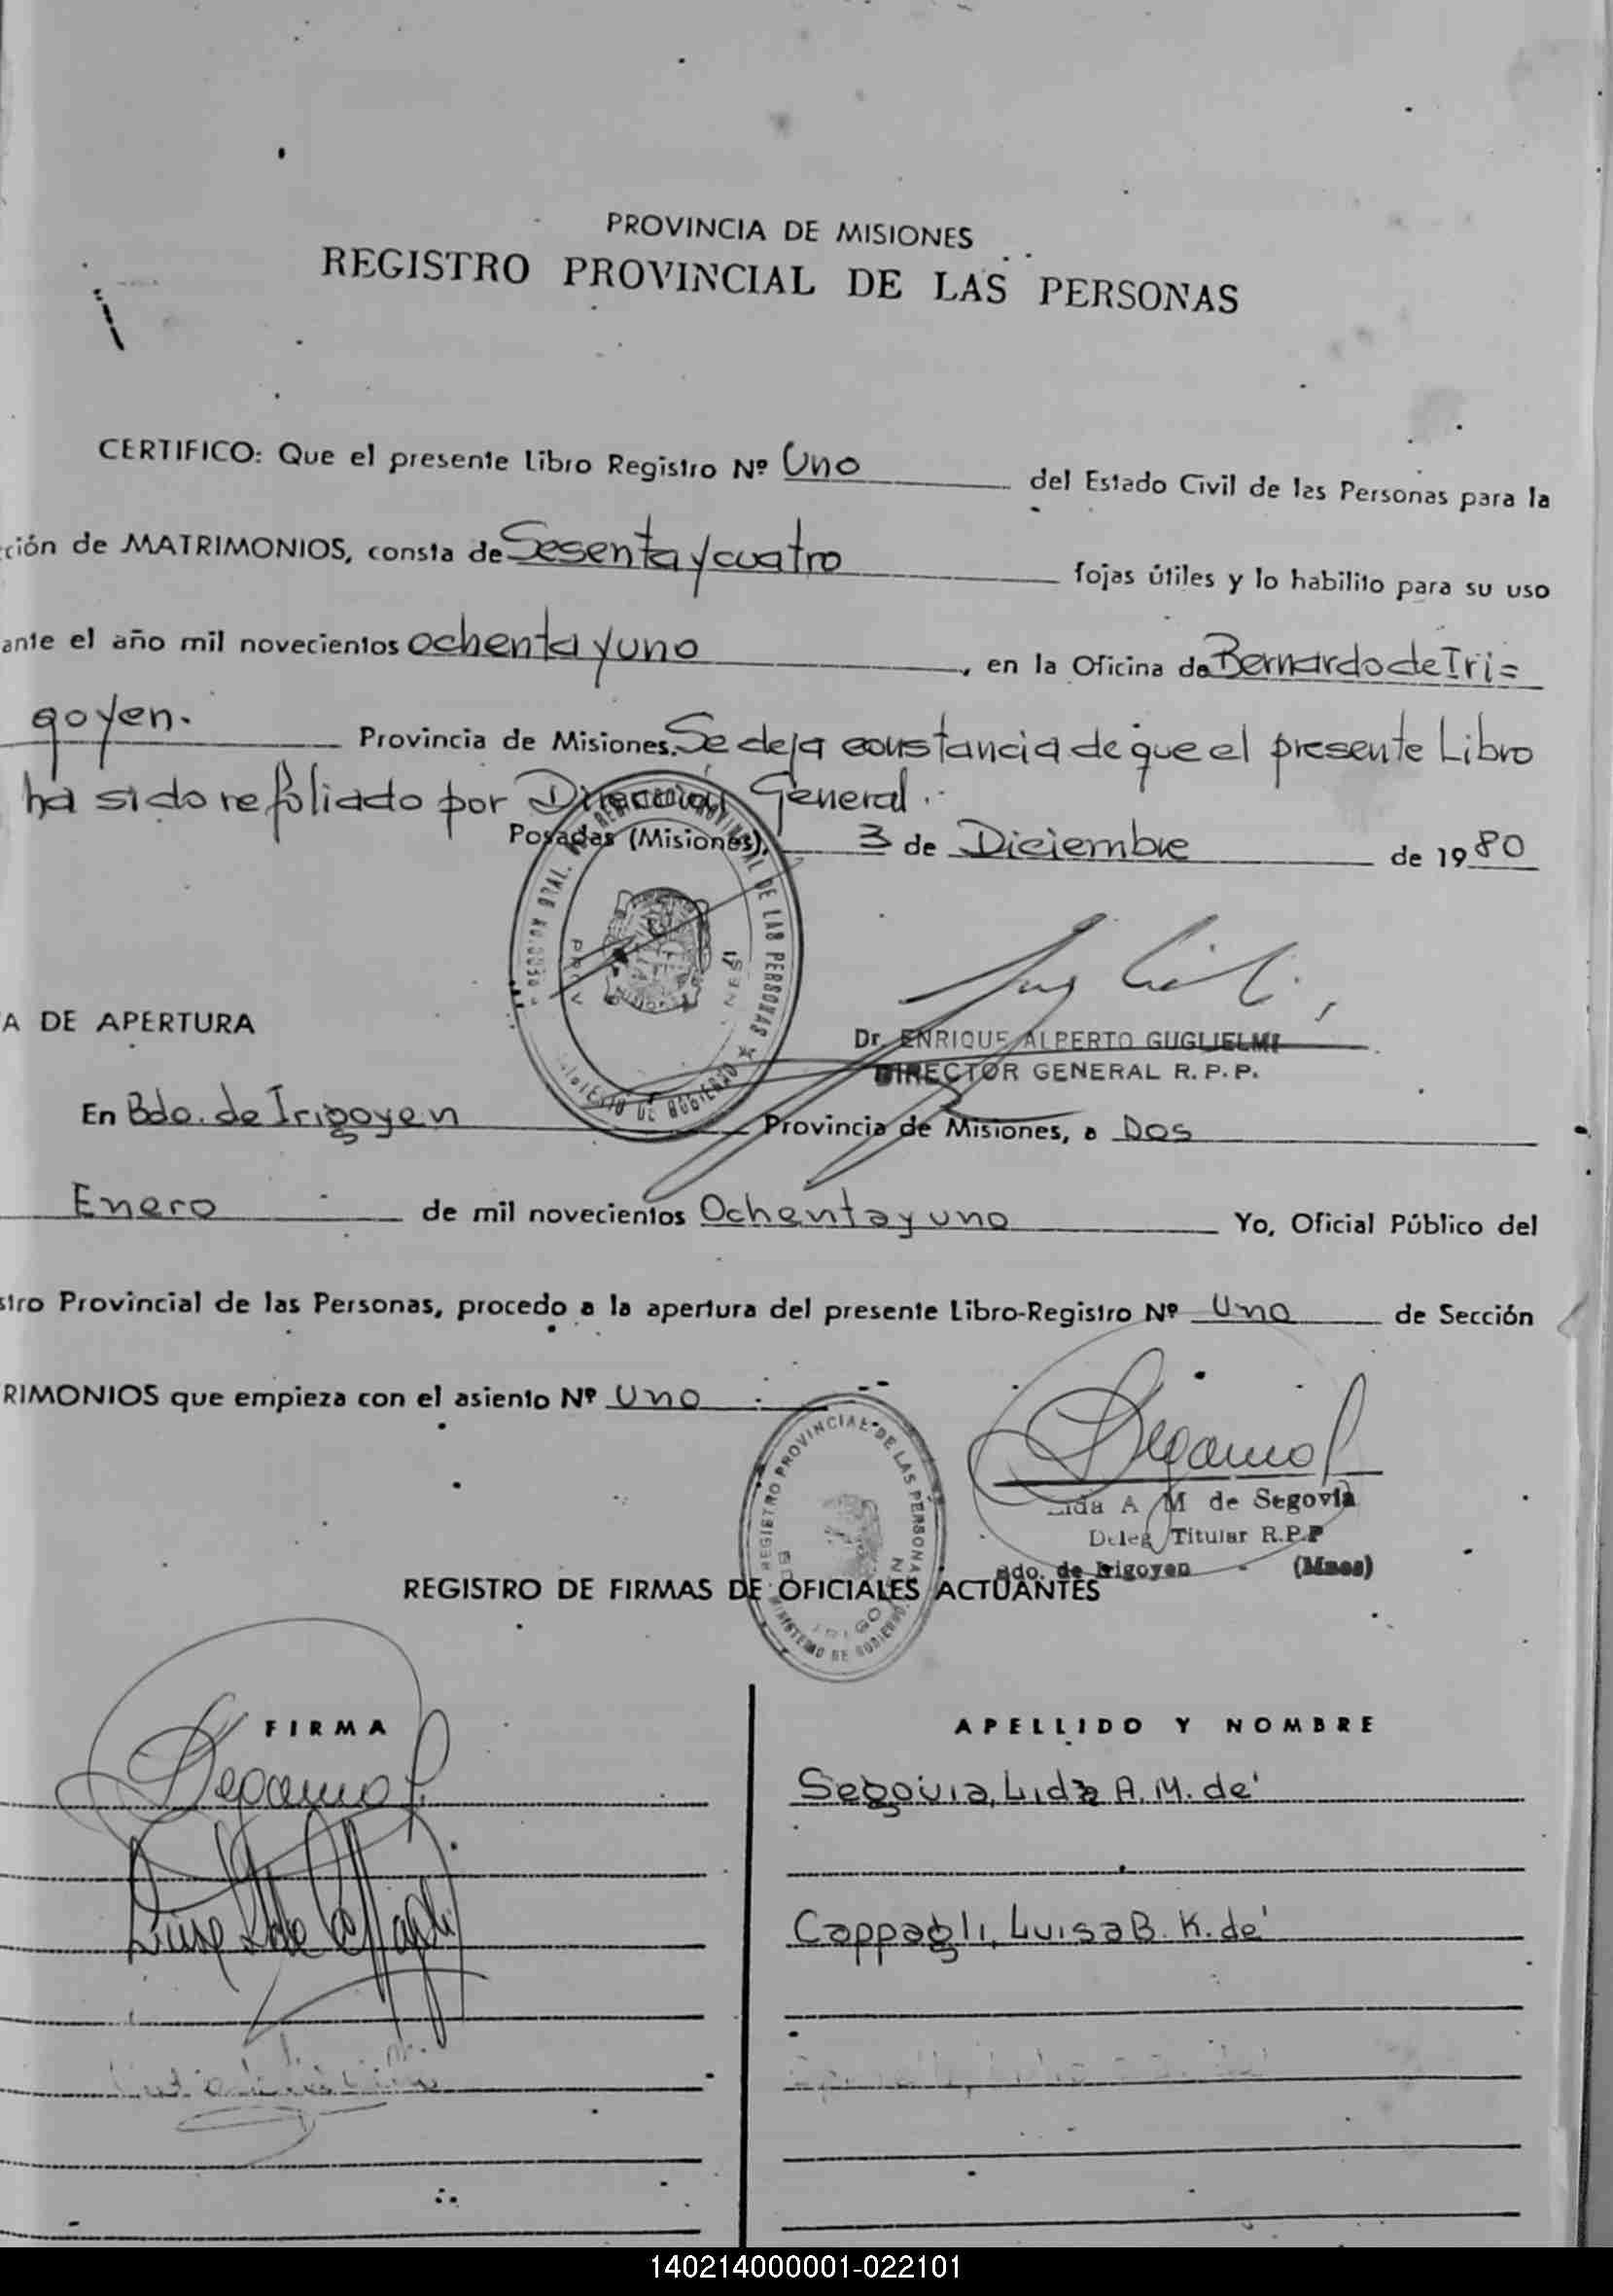 PROVINCIA DE MISIONES
REGISTRO PROVINCIAL DE LAS PERSONAS
CERTIFICO: Que el presente Libro Registro Nº Uno del Estado Civil de las Personas para la
ción de MATRIMONIOS, consta de Sesenta y cuatro fojas útiles y lo habilito para su uso
ante el año mil novecientos ochenta y uno, en la Oficina de Bernardo de Iri=
goyen. Provincia de Misiones. Se deja constancia de que el presente Libro
ha sido refoliado por Dirección General.
Posadas (Misiones), 3 de Diciembre de 1980
DIRECCION GRAL. DEL REGISTRO PROVINCIAL DE LAS PERSONAS
PROV MISIONES
MINISTERIO DE GOBIERNO
A DE APERTURA
Dr. ENRIQUE ALBERTO GUGLIELMI
DIRECTOR GENERAL R. P. P.
En Bdo. de Irigoyen Provincia de Misiones, a Dos
Enero de mil novecientos Ochenta y uno Yo, Oficial Público del
stro Provincial de las Personas, procedo a la apertura del presente Libro-Registro Nº Uno de Sección
RIMONIOS que empieza con el asiento Nº Uno
REGISTRO PROVINCIAL DE LAS PERSONAS
MINISTERIO DE GOBIERNO
Lida A M de Segovia
Deleg Titular R.P.P
Bdo. de Irigoyen - (Mnes)
REGISTRO DE FIRMAS DE OFICIALES ACTUANTES
FIRMA APELLIDO Y NOMBRE
Segovia, Lida A. M. de
Cappagli, Luisa B. K. de
140214000001-022101